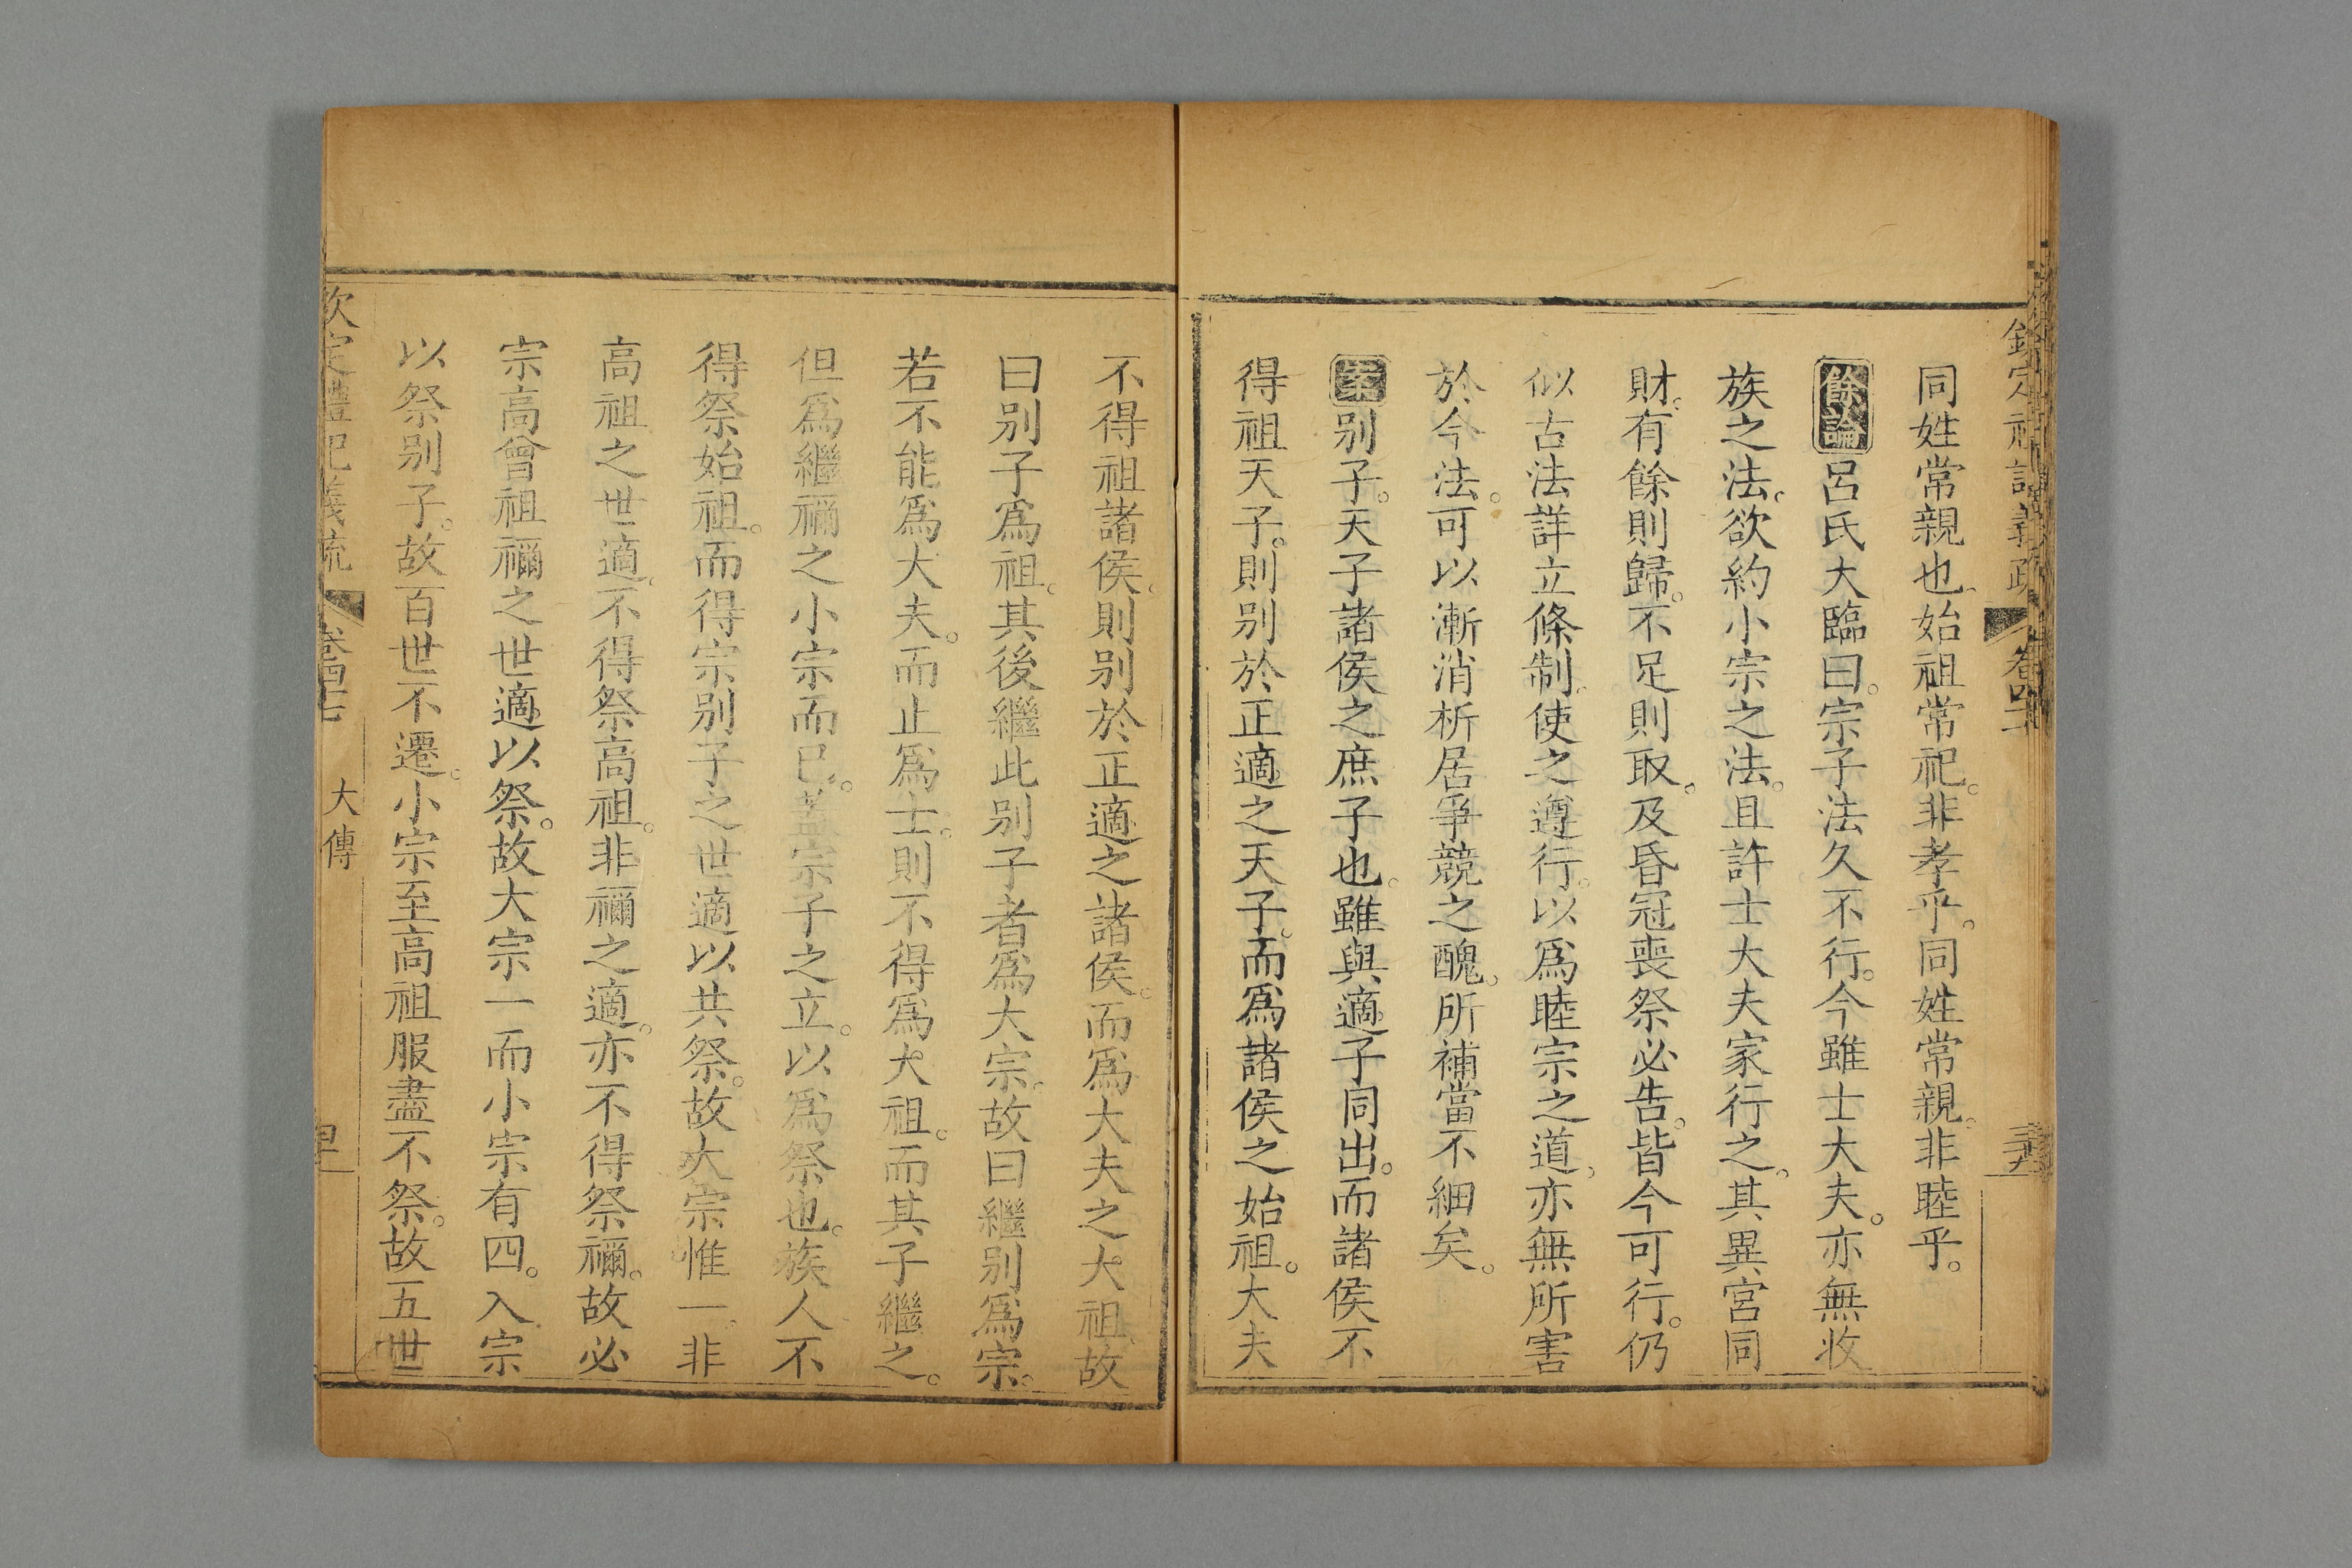 同姓常親也始祖常祀。非孝乎。同姓常親。非睦乎。
餘論呂氏大臨曰。宗子法久不行。今雖士大夫。亦無收
族之法。欲約小宗之法。且許士大夫家行之。其異宮同
財。有餘則歸。不足則取。及昏冠喪祭必告。皆今可行。仍
似古法詳立條制。使之遵行。以爲睦宗之道。亦無所害
於今法。可以漸消析居爭競之醜。所補當不細矣。
案别子。天子諸侯之庶子也。雖與適子同出。而諸侯不
得祖天子。則别於正適之天子。而爲諸侯之始祖。大夫
不得祖諸侯。則别於正適之諸侯。而爲大夫之大祖。故
曰别子爲祖。其後繼此别子者爲大宗。故曰繼别爲宗。
若不能爲大夫。而止爲士。則不得爲大祖。而其子繼之。
但爲繼禰之小宗而已。蓋宗子之立。以爲祭也。族人不
得祭始祖。而得宗别子之世適以共祭。故大宗惟一。非
高祖之世適。不得祭高祖。非禰之適。亦不得祭禰。故必
宗高曾祖禰之世適以祭。故大宗一而小宗有四。入宗
以祭别子。故百世不遷。小宗至高祖服盡不祭。故五世
欽定禮記義疏 卷四十
大傳